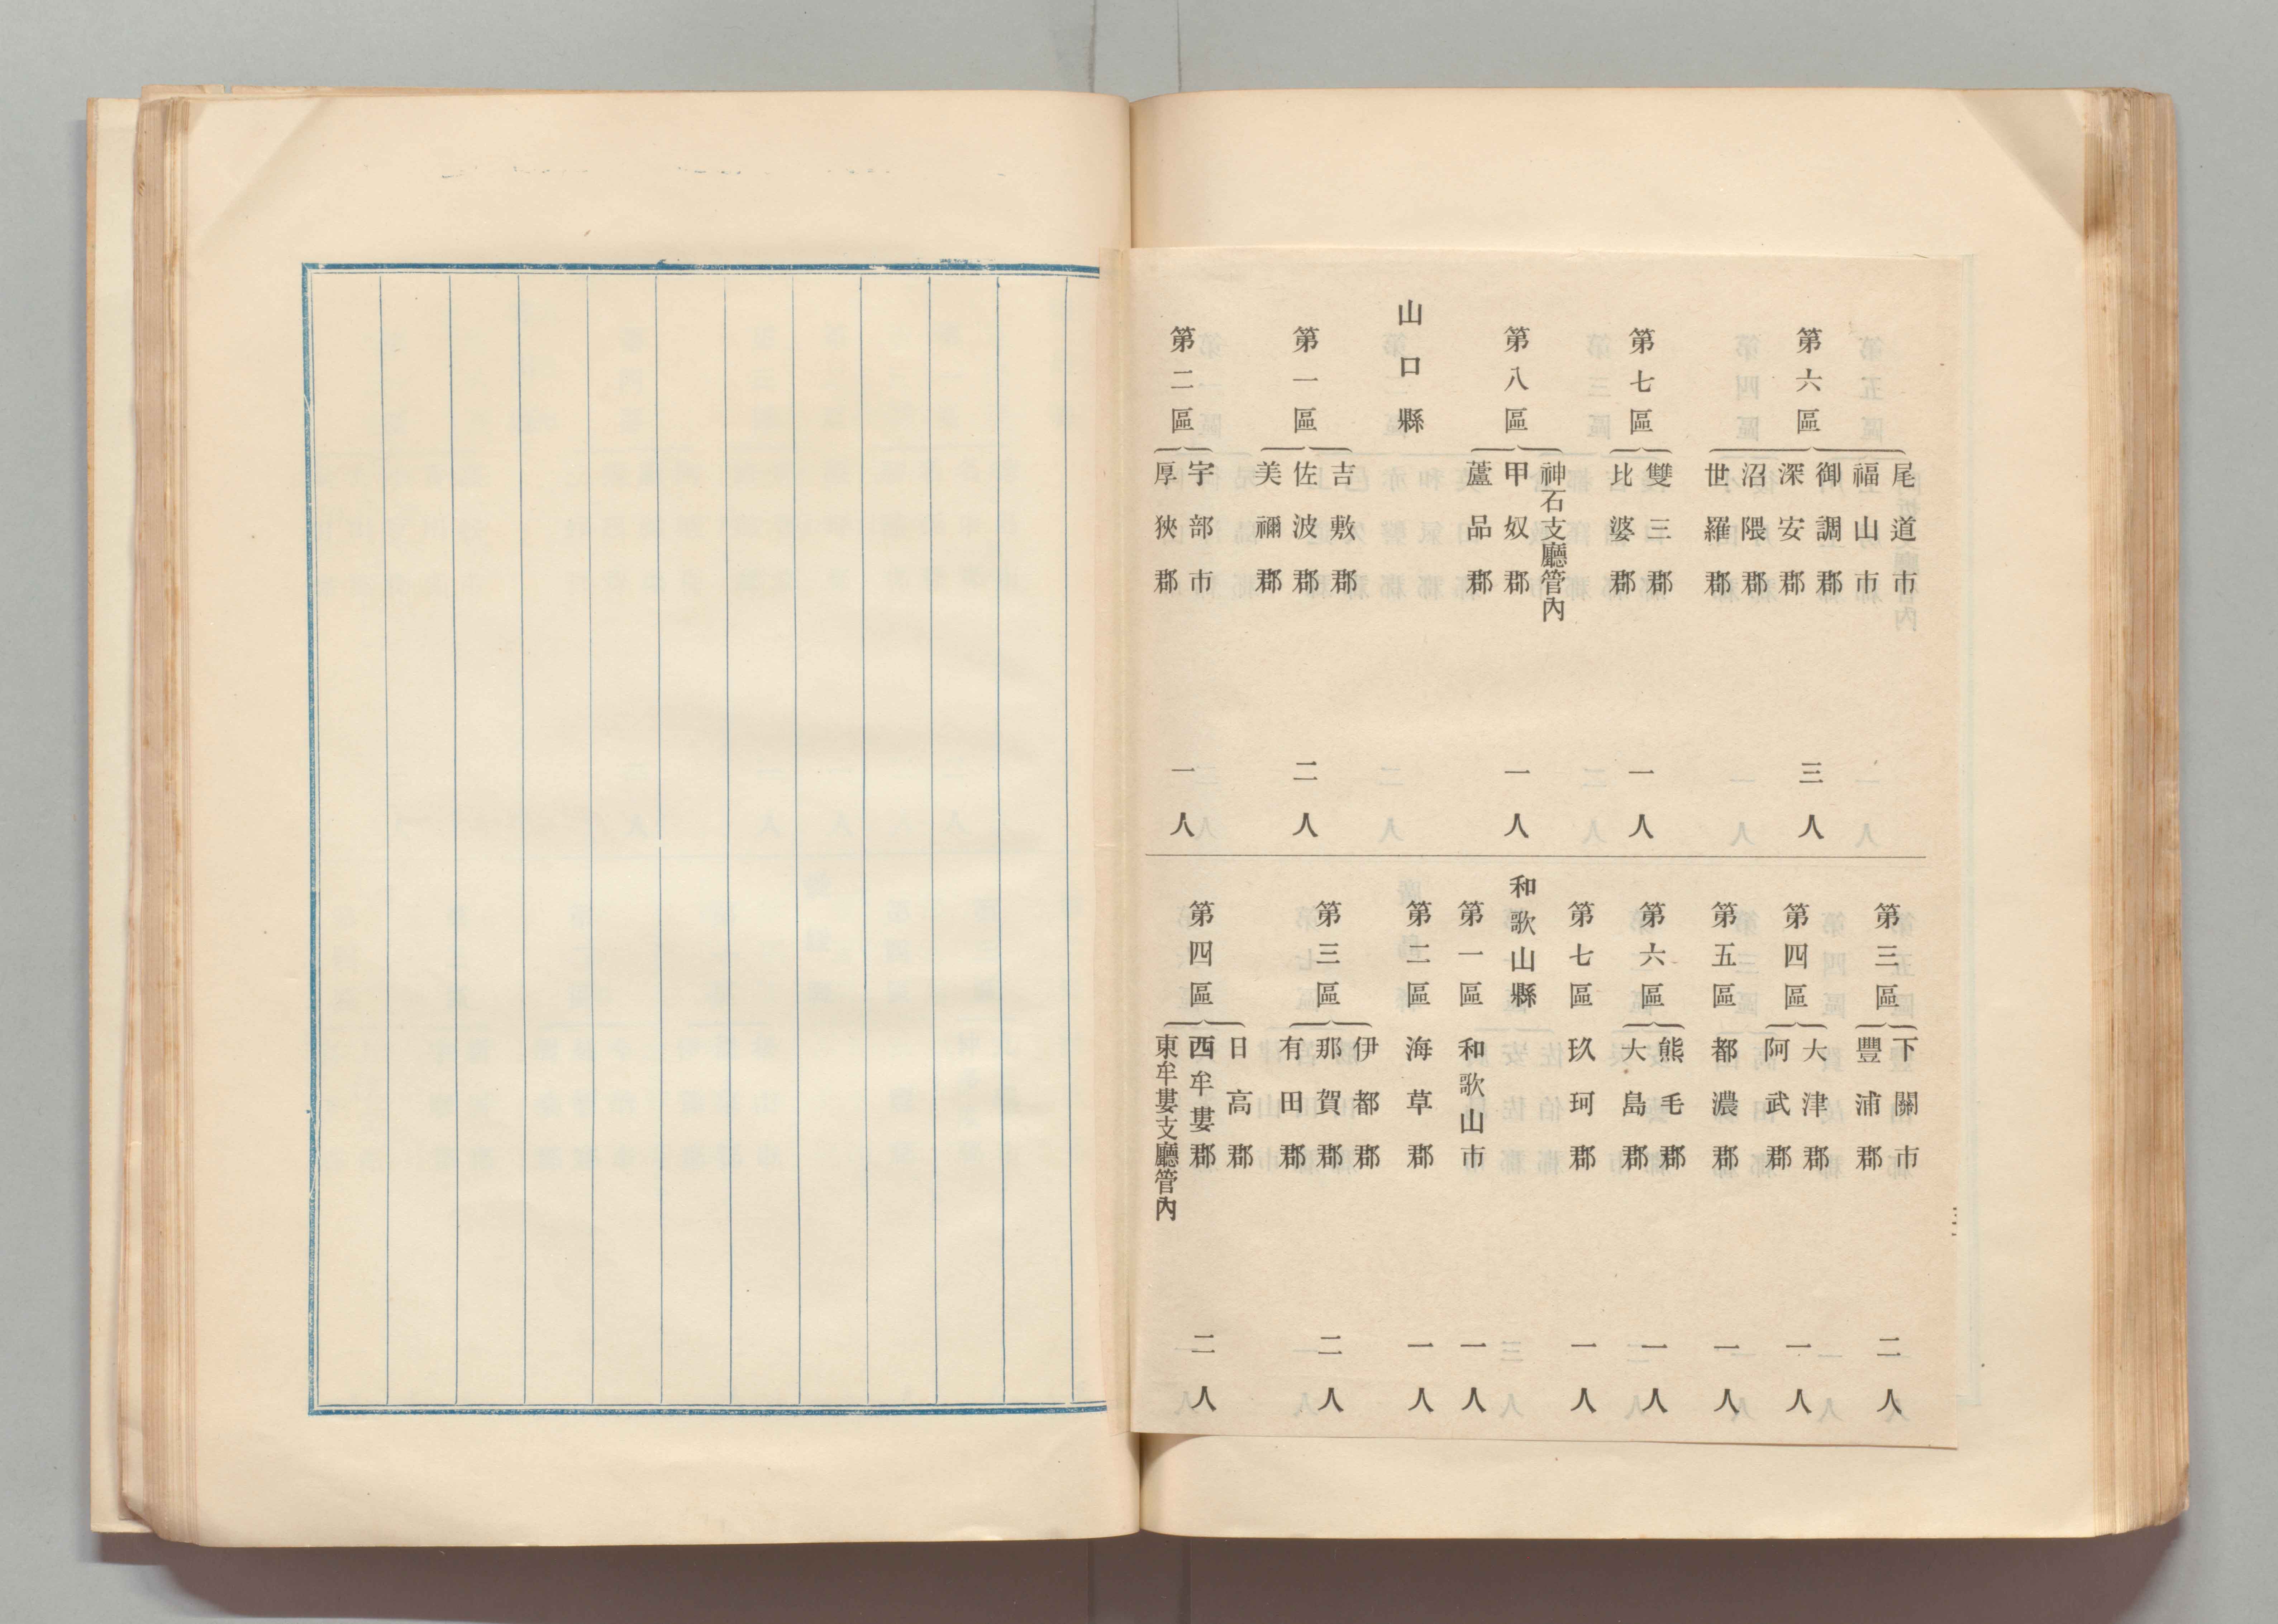 第六區
尾道市
福山市
御調郡
深安郡
沼隈郡
世羅郡
三人
第七區
雙三郡
比婆郡
一人
第八區
神石支廳管內
甲奴郡
蘆品郡
一人
山口縣
第一區
吉敷郡
佐波郡
美禰郡
二人
第二區
宇部市
厚狹郡
一人
第三區
下關市
豐浦郡
二人
第四區
大津郡
阿武郡
一人
第五區
都濃郡
一人
第六區
熊毛郡
大島郡
一人
第七區
玖珂郡
一人
和歌山縣
第一區
和歌山市
一人
第二區
海草郡
一人
第三區
伊都郡
那賀郡
有田郡
二人
第四區
日高郡
西牟婁郡
東牟婁支廳管內
二人